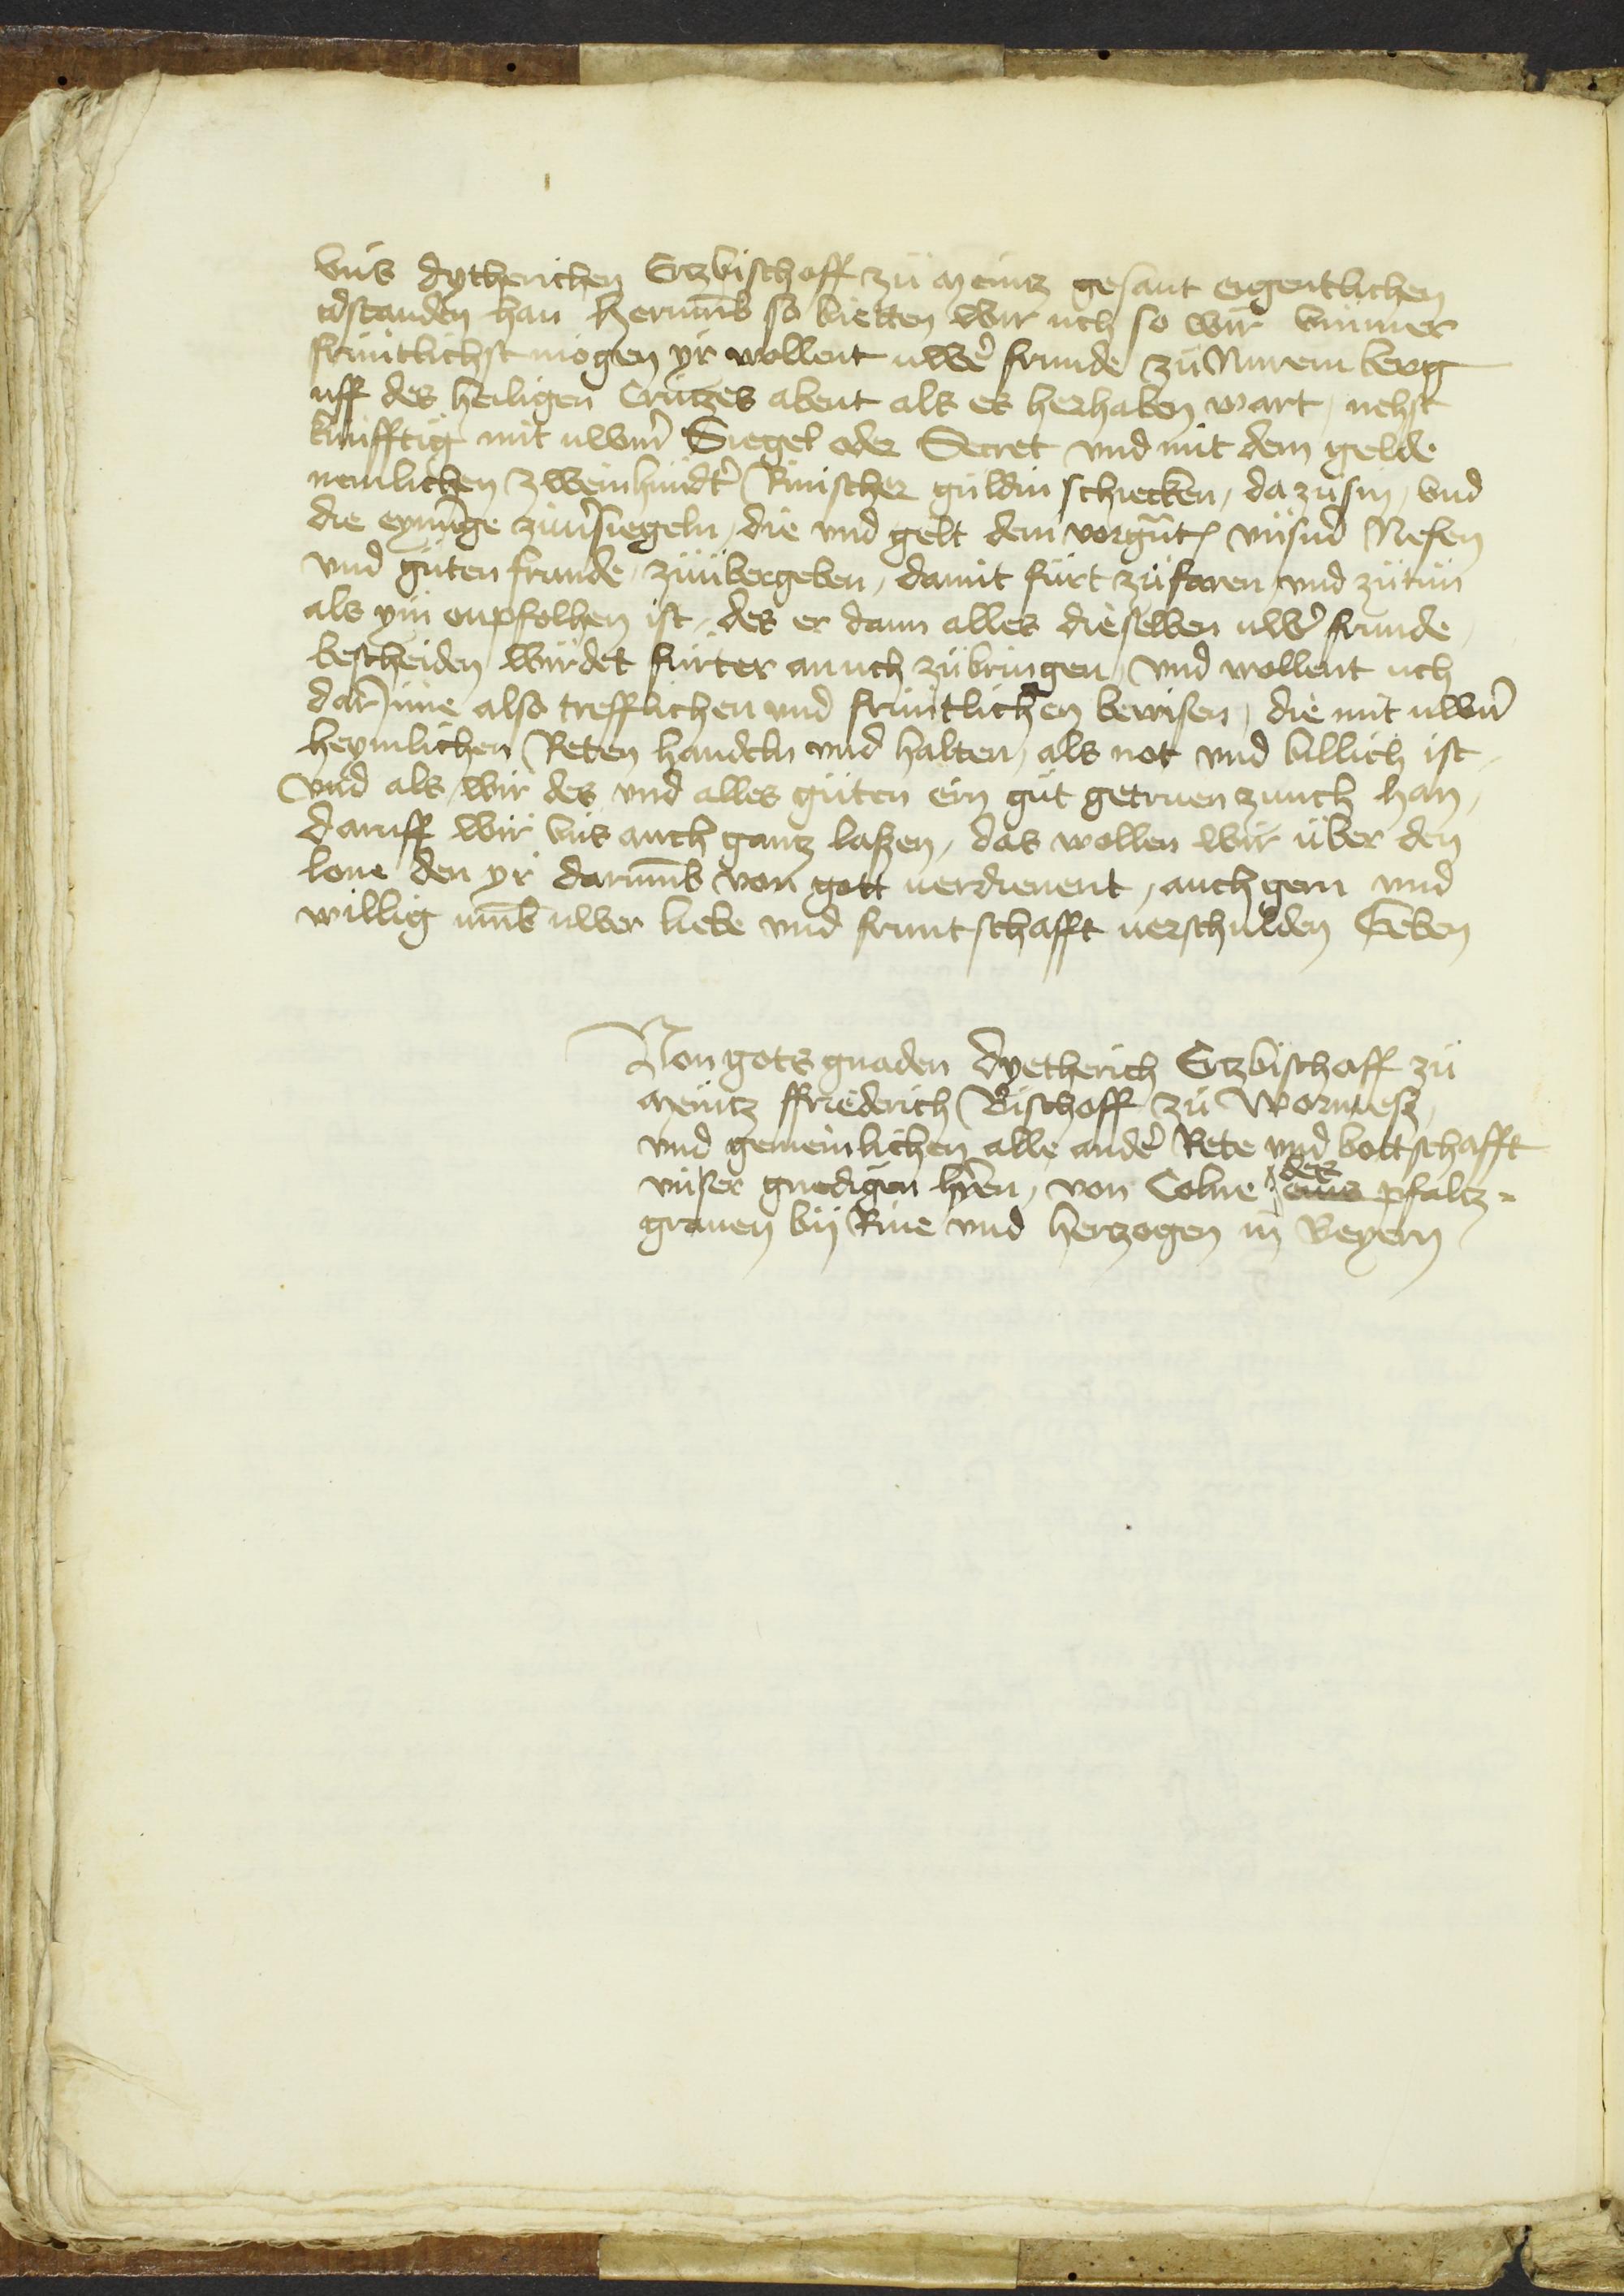 vns dytherichen Ertzbischoff zu Meintz gesant eigentlichen
v'standen han herumb so bietten wir uch so wir ummer
fruntlichst mogen yr wollent uwer frunde zu Nuremberg
uff des heiligen Crutzes abent als es herhaben wart, nehst
kunfftig mit uwerm Siegel oder Secret vnd mit dem gelde
nemlichen zweinhundert Rinischer guldin schicken, da zu sin, vnd
die eynunge zuu'siegeln, die vnd gelt dem vorgnt vnsen Nefen
vnd guten frunde, zuubergeben, damit furt zufaren vnd zutun
als ym enpfolhen ist, des er dann alles dieselben uwer frunde
bescheiden wurdet furter an uch zubringen, vnd wollent uch
dar Inne also trefflichen vnd fruntlichen bewisen, die mit uwern
heymlichen Reten handeln vnd halten, als not vnd billich ist,
vnd als wir des vnd alles guten ein gut getruen zuuch han,
daruff wir vns auch gantz laßen, das wollen wir uber den
lone den yr darumb von gott uerdienent, auch gern vnd
willig umb uwer liebe vnd fruntschafft uerschulden Geben
Von gots gnaden dyetherich Ertzbischoff zu
Meintz ffriederich Bischoff zu Wormesz,
vnd gemeinlichen alle ander Rete vnd bottschafft
vnser gnedigen hern, von Colne des eins pfaltz=
grauen by Rine vnd hertzogen in Beyern